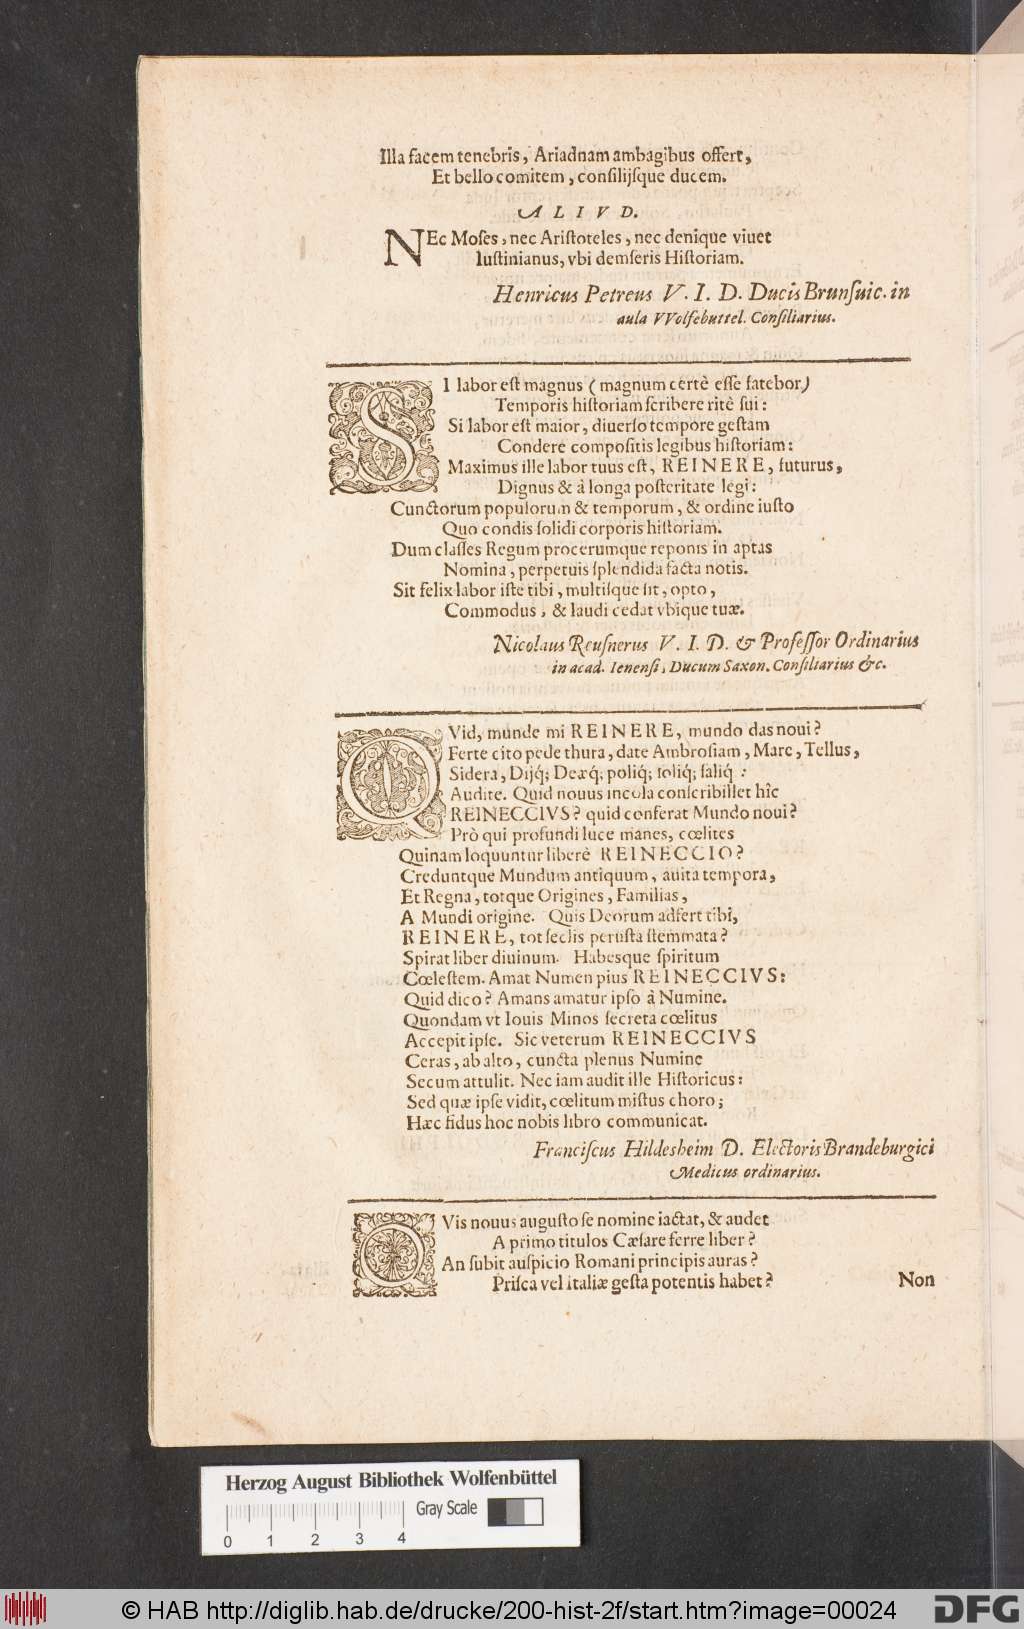 Illa facem tenebris, Ariadnam ambagibus offert,
Et bello comitem, consilijſque ducem.
ALIVD.
NEc Moſes, nec Ariſtoteles, nec denique viuet
Iuſtinianus, vbi demſeris Hiſtoriam.
Henricus Petreus V. I. D. Ducis Brunſuic. in
aula VVolfebuttel. Conſiliarius.
SI labor eſt magnus (magnum certè eſſe fatebor)
Temporis hiſtoriam ſcribere ritè ſui:
Si labor eſt maior, diuerſo tempore geſtam
Condere compoſitis legibus hiſtoriam:
Maximus ille labor tuus eſt, REINERE, futurus,
Dignus & à longa poſteritate legi:
Cunctorum populorum & temporum, & ordine iuſto
Quo condis ſolidi corporis hiſtoriam.
Dum claſſes Regum procerumque reponis in aptas
Nomina, perpetuis ſplendida facta notis.
Sit felix labor iſte tibi, multiſque ſit, opto,
Commodus, & laudi cedat vbique tuæ.
Nicolaus Reuſnerus V. I. D. & Profeſſor Ordinarius
in acad. Ienenſi, Ducum Saxon. Conſiliarius &c.
QVid, munde mi REINERE, mundo das noui?
Ferte cito pede thura, date Ambroſiam, Mare, Tellus,
Sidera, Dijq́; Deæq́; poliq́; ſoliq́; ſaliq́ :
Audite. Quid nouus incola conſcribillet hîc
REINECCIVS? quid conferat Mundo noui?
Prò qui profundi luce manes, cœlites
Quinam loquuntur liberè REINECCIO?
Creduntque Mundum antiquum, auita tempora,
Et Regna, totque Origines, Familias,
A Mundi origine. Quis Deorum adfert tibi,
REINERE, tot ſeclis peruſta ſtemmata?
Spirat liber diuinum. Habesque ſpiritum
Cœleſtem. Amat Numen pius REINECCIVS:
Quid dico? Amans amatur ipſo à Numine.
Quondam vt Iouis Minos ſecreta cœlitus
Accepit ipſe. Sic veterum REINECCIVS
Ceras, ab alto, cuncta plenus Numine
Secum attulit. Nec iam audit ille Hiſtoricus:
Sed quæ ipſe vidit, cœlitum miſtus choro;
Hæc fidus hoc nobis libro communicat.
Franciſcus Hildesheim D. Electoris Brandeburgici
Medicus ordinarius.
QVis nouus auguſto ſe nomine iactat, & audet
A primo titulos Cæſare ferre liber?
An ſubit auſpicio Romani principis auras?
Priſca vel Italiæ geſta potentis habet?
Non
Herzog August Bibliothek Wolfenbüttel
Gray Scale
0 1 2 3 4
© HAB http://diglib.hab.de/drucke/200-hist-2f/start.htm?image=00024
DFG